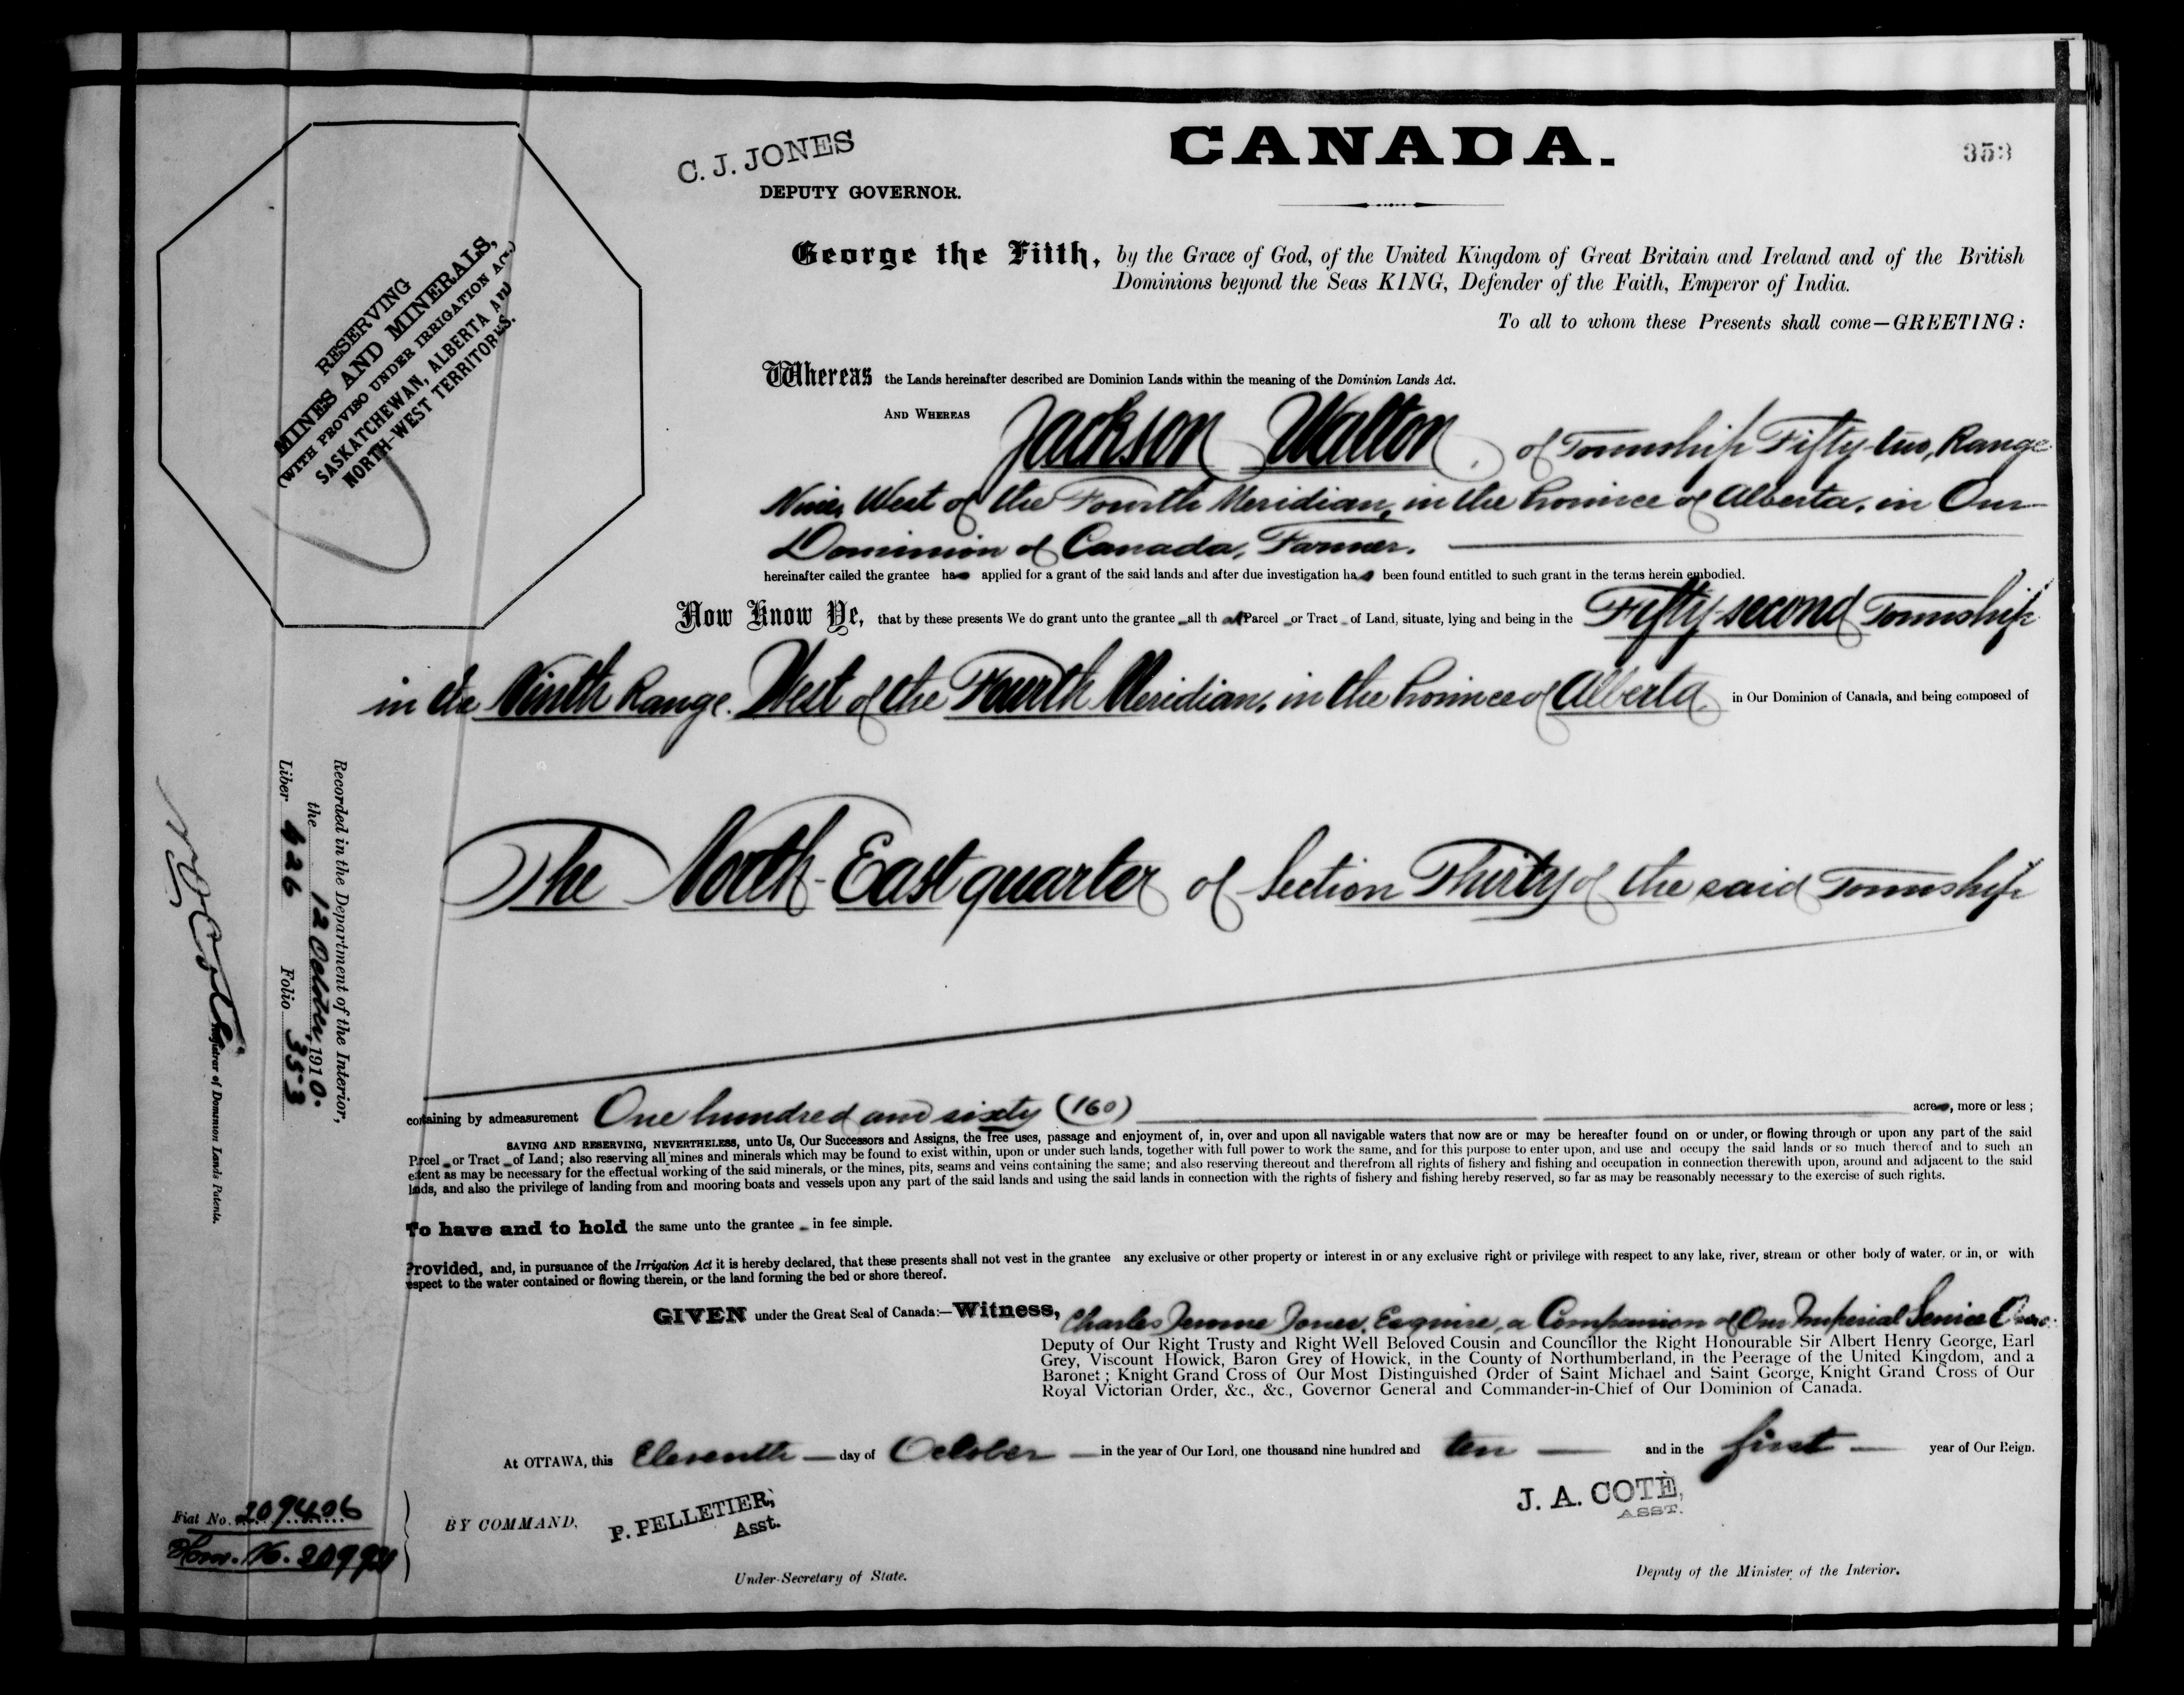 C. J. JONES
DEPUTY GOVERNOR.
CANADA.
353
RESERVING
MINES AND MINERALS,
(WITH PROVISO UNDER IRRIGATION ACT)
SASKATCHEWAN, ALBERTA AND
NORTH-WEST TERRITORIES.
George the Fifth, by the Grace of God, of the United Kingdom of Great Britain and Ireland and of the British
Dominions beyond the Seas KING, Defender of the Faith, Emperor of India.
To all to whom these Presents shall come—GREETING:
Whereas the Lands hereinafter described are Dominion Lands within the meaning of the Dominion Lands Act.
AND WHEREAS Jackson Walton, of Township Fifty-two, Range
Nine, West of the Fourth Meridian, in the Province of Alberta, in Our
Dominion of Canada, Farmer.
hereinafter called the grantee has applied for a grant of the said lands and after due investigation has been found entitled to such grant in the terms herein embodied.
Now Know Ye, that by these presents We do grant unto the grantee all that Parcel or Tract of Land, situate, lying and being in the Fifty-second Township
in the Ninth Range, West of the Fourth Meridian, in the Province of Alberta, in Our Dominion of Canada, and being composed of
The North-East quarter of Section Thirty of the said Township
containing by admeasurement One hundred and sixty (160) acres, more or less;
SAVING AND RESERVING, NEVERTHELESS, unto Us, Our Successors and Assigns, the free uses, passage and enjoyment of, in, over and upon all navigable waters that now are or may be hereafter found on or under, or flowing through or upon any part of the said
Parcel or Tract of Land; also reserving all mines and minerals which may be found to exist within, upon or under such lands, together with full power to work the same, and for this purpose to enter upon, and use and occupy the said lands or so much thereof and to such an
extent as may be necessary for the effectual working of the said minerals, or the mines, pits, seams and veins containing the same; and also reserving thereout and therefrom all rights of fishery and fishing and occupation in connection therewith upon, around and adjacent to the said
lands, and also the privilege of landing from and mooring boats and vessels upon any part of the said lands and using the said lands in connection with the rights of fishery and fishing hereby reserved, so far as may be reasonably necessary to the exercise of such rights.
To have and to hold the same unto the grantee in fee simple.
Provided, and, in pursuance of the Irrigation Act it is hereby declared, that these presents shall not vest in the grantee any exclusive or other property or interest in or any exclusive right or privilege with respect to any lake, river, stream or other body of water, or in, or with
respect to the water contained or flowing therein, or the land forming the bed or shore thereof.
GIVEN under the Great Seal of Canada:—Witness, Charles Jerome Jones, Esquire, a Companion of Our Imperial Service Order
Deputy of Our Right Trusty and Right Well Beloved Cousin and Councillor the Right Honourable Sir Albert Henry George, Earl
Grey, Viscount Howick, Baron Grey of Howick, in the County of Northumberland, in the Peerage of the United Kingdom, and a
Baronet; Knight Grand Cross of Our Most Distinguished Order of Saint Michael and Saint George, Knight Grand Cross of Our
Royal Victorian Order, &c., &c., Governor General and Commander-in-Chief of Our Dominion of Canada.
At OTTAWA, this Eleventh day of October in the year of Our Lord, one thousand nine hundred and ten and in the first year of Our Reign.
BY COMMAND,
P. PELLETIER,
Asst.
Under-Secretary of State.
J. A. COTÈ,
ASST.
Deputy of the Minister of the Interior.
Recorded in the Department of the Interior,
the 12 October, 1910.
Liber 426 Folio 353
Registrar of Dominion Lands Patents.
Fiat No. 209406
Hom. N.